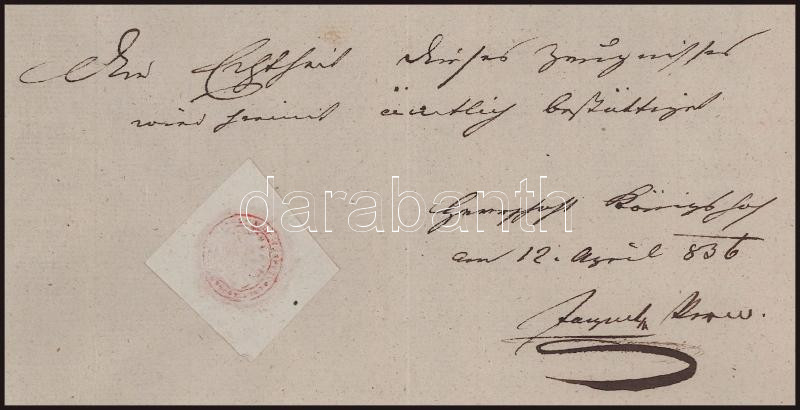 Die Echtheit dieses Zeugnisses
wird hiemit ämtlich bestättiget
darabanth
Herrschaft Königshof
am 12. April 836